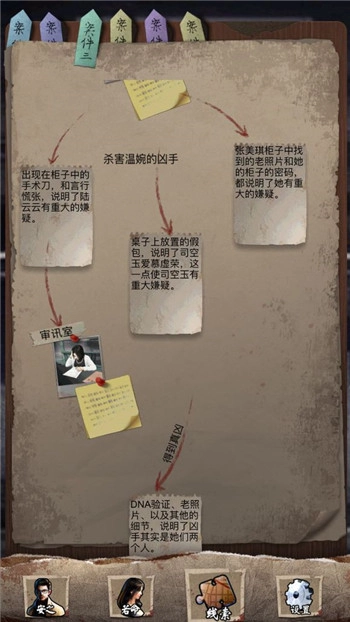 案件
案件
案件三
案件
案件
案件
杀害温婉的凶手
出现在柜子中的
手术刀，和言行
慌张，说明了陆
云云有重大的嫌
疑。
桌子上放置的假
包，说明了司空
玉爱慕虚荣，这
一点使司空玉有
重大嫌疑。
张美琪柜子中找
到的老照片和她
的柜子的密码，
都说明了她有重
大的嫌疑。
审讯室
得到真凶
DNA验证、老照
片、以及其他的
细节，说明了凶
手其实是她们两
个人。
安之
若命
线索
设置